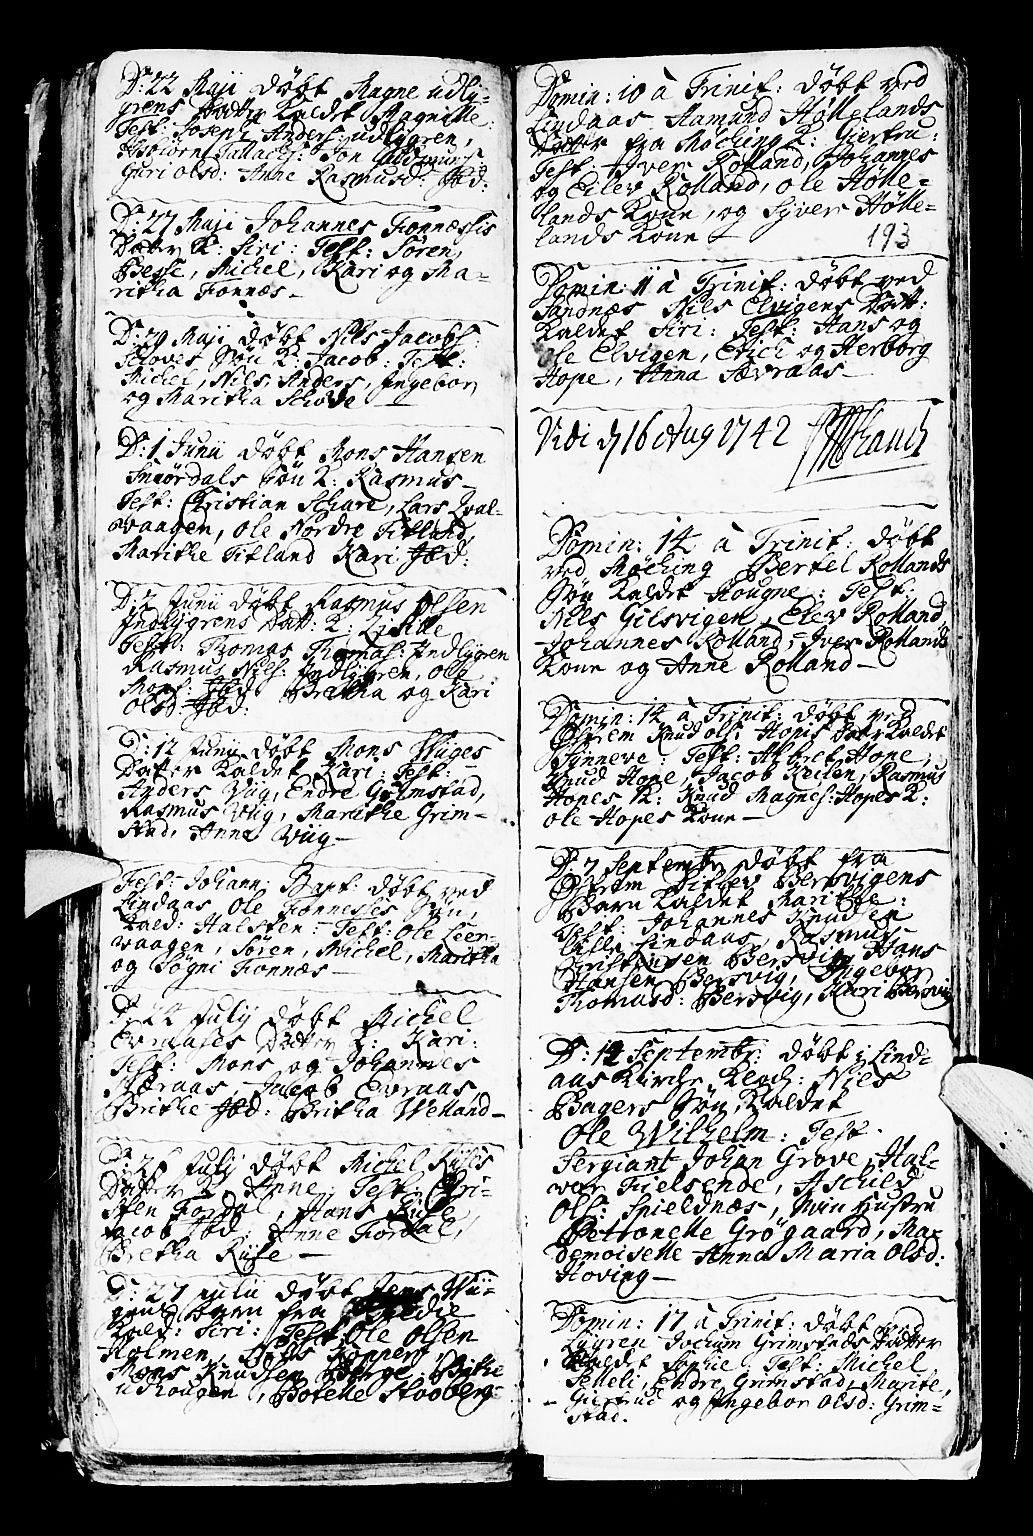 D: 22 Maji döbt Magne udLy-
grens Datter Kaldet Magnille:
Test: Joseph Anders: udlygren,
Guri Olsd: Anne Rasmusd: Ibd:
D: 27 Maji Johannes Fonnæssis
Datter K: Siri: Test: Sören,
Besse, Michel, Kari og Ma-
ritha Fonnæs
D: 29 Maji döbt Nils Jacobs:
Skoves Sön K: Jacob: Test:
Michel, Nils, Anders, Ingebor
og Maritha Schode
D: 1 Junii döbt Mons Hansen
Smördals Sön K: Rasmus
Test: Christian Schare, Lars Qval-
vaagen, Ole Nordre Titland,
Marithe Titland Kari Ibd:
D: 2 Junii döbt Rasmus Olsen
Indlygrens Datt: K:
Test: Thomas Thomas: Indlygren
Rasmus Nils: Indlygren, Ole
Mons: Ibd Bretha og Kari
Olsd: Ibd:
D: 12 Junii döbt Mons Wiiges
Datter Kaldet Kari: Test:
Anders Wiig, Endre Grimstad,
Rasmus Wiig, Marithe Grim-
stad, Anna Wiig
Fest: Johann: Bapt: döbt ved
Lindaas Ole Fonnesses Sön,
Kald: Halsten: Test: Ole Leer-
vaagen, Sören, Michel, Maritha
og Sögni Fonnæs
D: 24 Julij döbt Michel
Datter K: Kari:
Test: Mons og Johannes
Jacob Evraas
Brithe Ibd: Britha Welland
D: 26 Julij döbt Michel Rises
Datter K: Anne: Test: Chri-
sten Fordal, Hans Rise,
Jacob Ibd Anne Fordal,
Bretha Rise
D: 27 Julii döbt Jens Wii-
gens Barn fra
Kald: Siri: Test: Ole Olsen
Holmen, Nils Kopperi,
Mons Knudsen Berge, Brithe
udhougen, Botelle Stooberg
Domin: 10 à Trinit: döbt ved
Lindaas Hamund Höllelands
Datter fra Möching K: Giertru:
Test: Iver Rolland, Johannes
og Elev Rolland, Ole Hölle-
lands Kone, og Syver Hölle-
lands Kone
193
Domin: 11 à Trinit: döbt ved
Sandnæs Nils Elvigens Datt:
Kaldet Siri: Test: Hans og
Ole Elvigen, Erich og Herborg
Hope, AnnaÆvraas
Vidi d 16 Aug 1742
Domin: 14 à Trinit: döbt
ved Möching Bertel Rollands
Sön Kaldet Hougne: Test:
Nils Gilsvigen, Elev Rolland
Johannes Rolland, Iver Rollands
Kone og Anne Rolland
Domin: 14 à Trinit: döbt ved
Östrem Knud Ols: Hopes Datter Kaldet
Synneve: Test: Albret Hope,
Knud Hope, Jacob Keilen, Rasmus
Hopes K: Knud Magnes: Hopes K:
Ole Hopes Kone
D: 7 Septembr döbt fra
Östrem Ditlev Bersvigens
Barn Kaldet Marithe:
Test: Johannes Knudsen
Lindaas, Rasmus
Christensen Bersvig, Hans
Hansen Bersvig, Ingebor
Thomasd: Bersvig, Kari Bersvig
D: 14 Septembr: döbt i Lind-
aas Kirche Kloch: Niels
Bagers Sön, Kaldet
Ole Wilhelm: Test:
Sergiant Johan Grove, Hal-
vor Fielsende, Aschild
Ols: Spieldnæs, Min Hustru
Petronelle Grögaard, Ma-
demoiselle Anna Maria Olsd:
Hoving
Domin: 17 à Trinit: döbt ved
Lygren Jochum Grimstads Datter
Kaldet Sophie: Test: Michel
Endre Grimstad, Marite,
Giertrud og Ingebor Olsd: Grim-
stad.